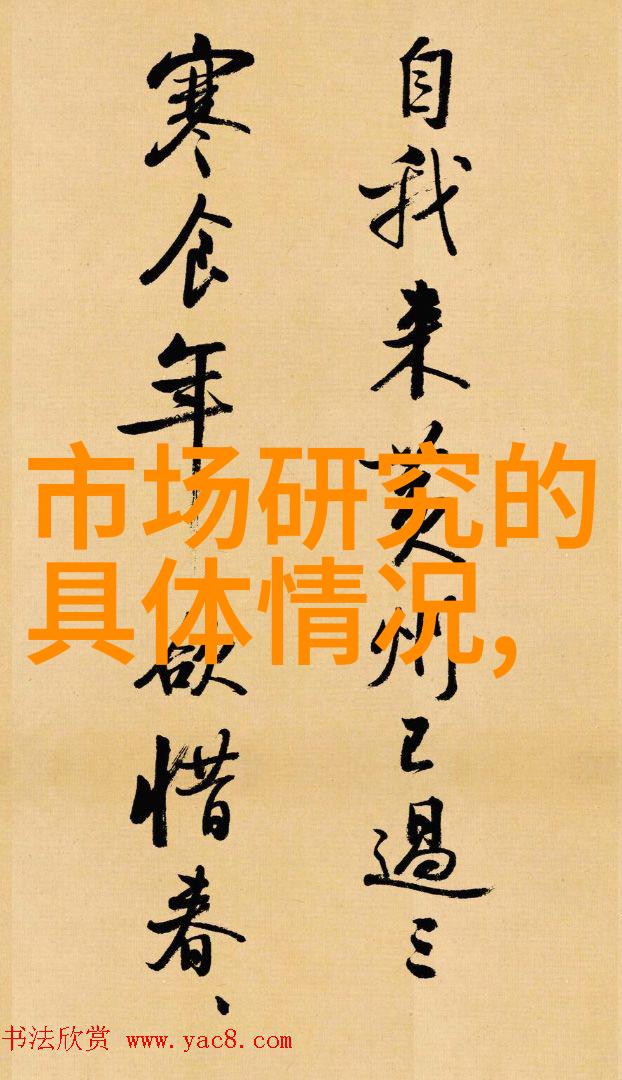 自我来黄州已过三
寒食年年欲惜春、
市场研究的
具体情况,
书法欣赏 www.yac8.com